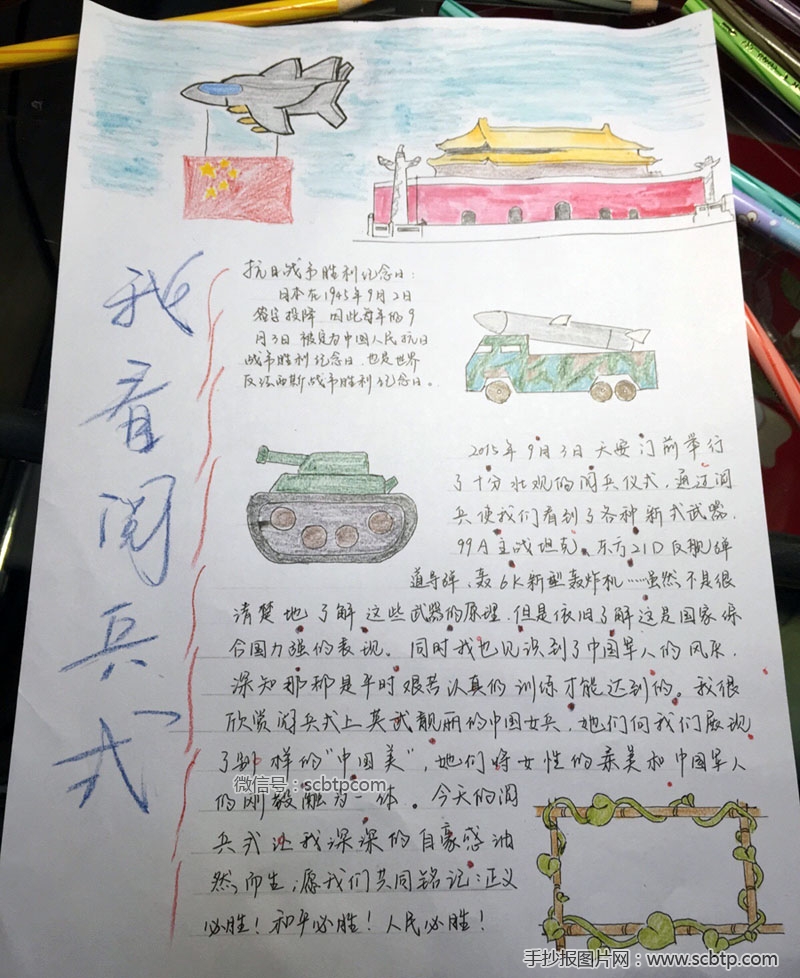 我看阅兵式
抗日战争胜利纪念日：
日本在1945年9月2日
签字投降，因此每年的9
月3日被定为中国人民抗日
战争胜利纪念日，也是世界
反法西斯战争胜利纪念日。
2015年9月3日天安门前举行
了十分壮观的阅兵仪式，通过阅
兵使我们看到了各种新式武器，
99A主战坦克、东方21D反舰弹
道导弹、轰6K新型轰炸机……虽然不是很
清楚地了解这些武器的原理，但是依旧了解这是国家综
合国力强的表现。同时我也见识到了中国军人的风采，
深知那都是平时艰苦认真的训练才能达到的。我很
欣赏阅兵式上英武靓丽的中国女兵，她们向我们展现
了别样的“中国美”，她们将女性的柔美和中国军人
的刚毅融为一体。今天的阅
兵式让我深深的自豪感油
然而生，愿我们共同铭记：正义
必胜！和平必胜！人民必胜！
微信号：scbtpcom
手抄报图片网：www.scbtp.com